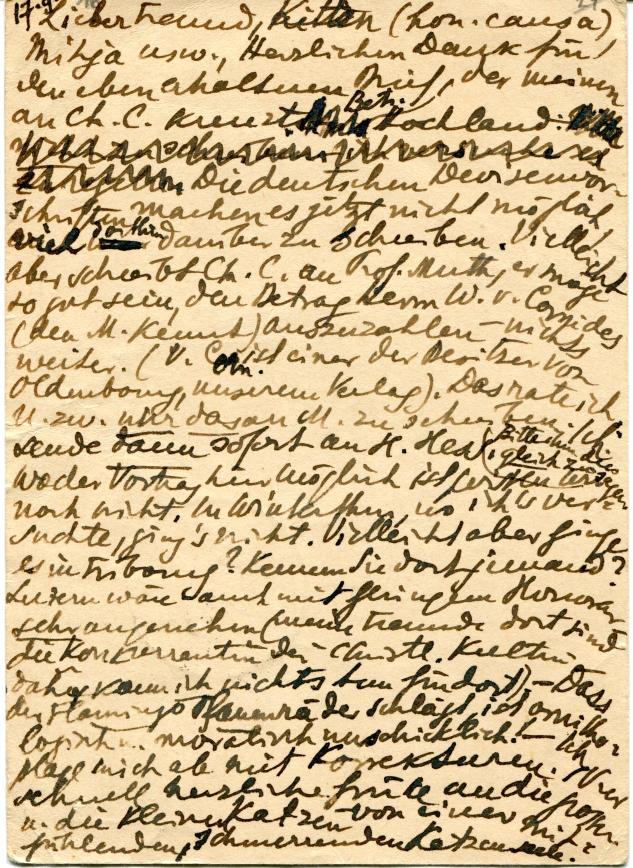 17.9.
Lieber Freund, Kitten (hon. causa)
Mitja usw., Herzlichen Dank für
den eben erhaltenen Brief, der meinen
an Ch. C. kreuzt. Betr. Hochland:
Die deutschen Devisenvor-
schriften machen es jetzt nicht möglich,
viel darüber zu schreiben. Vielleicht
aber schreibt Ch. C. an Prof. Muth, er möge
so gut sein, den Betrag Herrn W. v. Cornides
(den M. kennt) auszuzahlen – nichts
weiter. (V. Corn. ist einer der Besitzer von
Oldenbourg, unserem Verlag). Das rate ich
u. zw. nur das an M. zu schreiben. Ich
sende dann sofort an H. Hess (Bitte ihm dies
gleich zu sagen
Wo der Vortrag hier möglich ist
noch nicht. In Winterthur, wo ich's ver-
suchte, ging's nicht. Vielleicht aber ginge
es in Fribourg? Kennen Sie dort jemand?
Luzern wäre auch mit geringem Honorar
sehr angenehm (meine Freunde dort sind
die Konkurrentin der christl. Kultur
daher kann ich nichts tun für dort). – Dass
der Flamingo Räder schlägt, ist ornitho-
logisch u. moralisch unschicklich! – Ich
plage mich ab mit Korrekturen. Nur
schnell herzliche Grüße an die großen
u. die kleinen Katzen von einer mit-
fühlenden, schnurrenden Katzenseele.